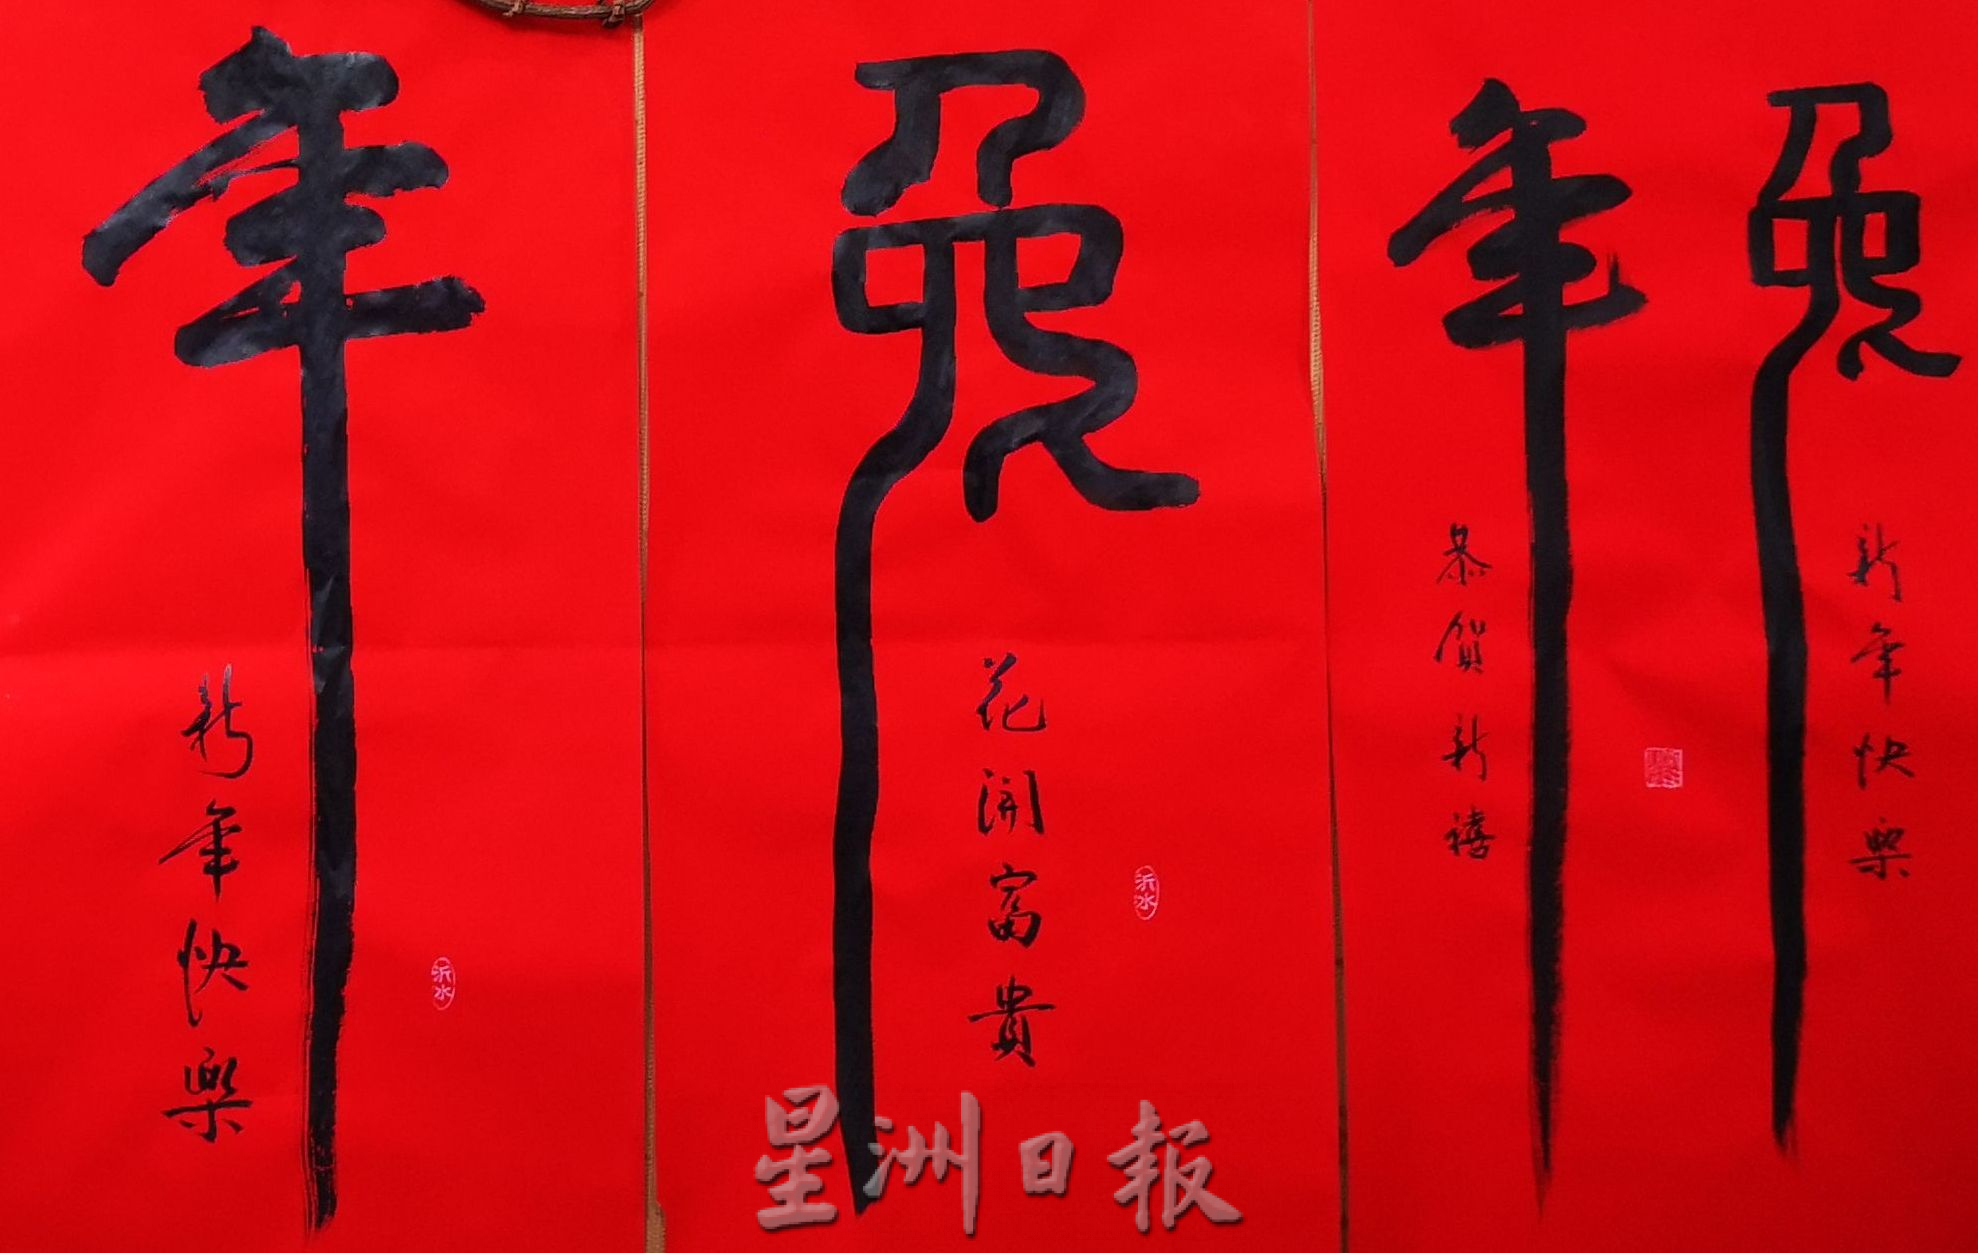 兔
新年快樂
年
恭賀新禧
兔
花開富貴
沂水
年
新年快樂
沂水
星洲日報